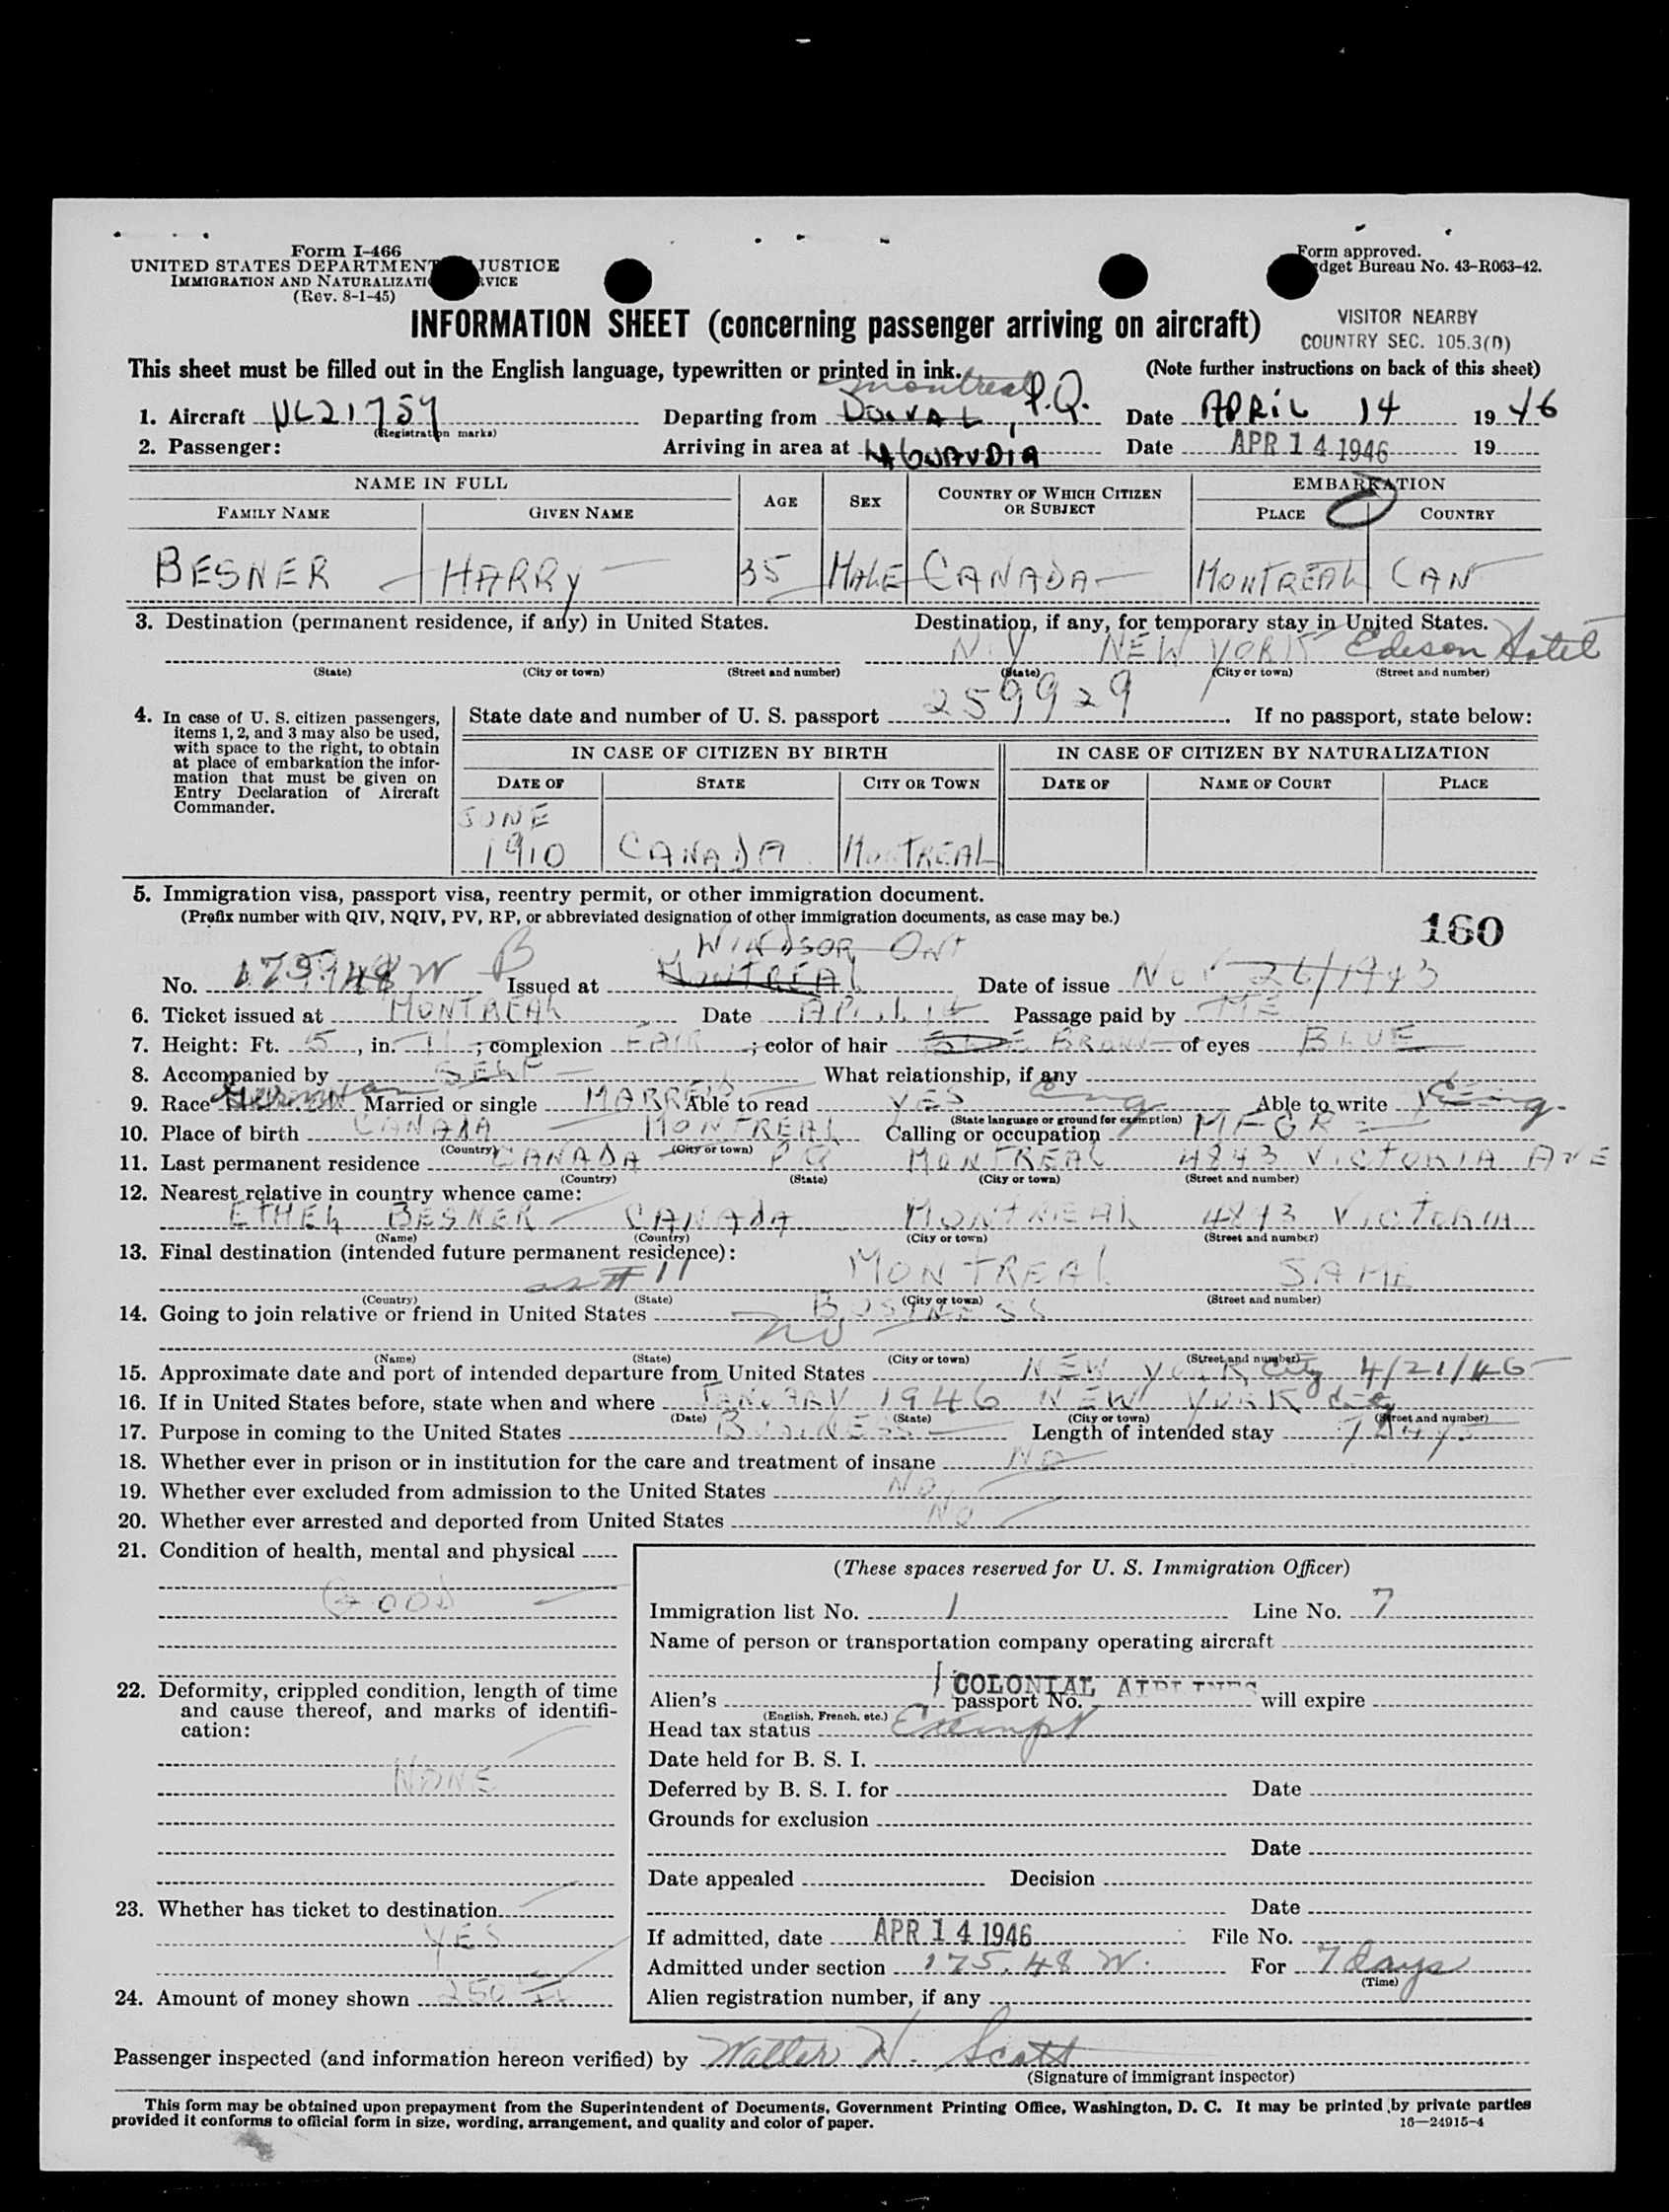 Form I-466
UNITED STATES DEPARTMENT JUSTICE
IMMIGRATION AND NATURALIZATI RVICE
(Rev. 8-1-45)
Form approved.
dget Bureau No. 43-R063-42.
INFORMATION SHEET (concerning passenger arriving on aircraft)
VISITOR NEARBY
COUNTRY SEC. 105.3(D)
This sheet must be filled out in the English language, typewritten or printed in ink. (Note further instructions on back of this sheet)
Montreal P.Q.
1. Aircraft NC21757 Departing from DORVAL Date APRIL 14 1946
(Registration marks)
2. Passenger: Arriving in area at LAGUAVDIA Date APR 14 1946 19
NAME IN FULL AGE SEX COUNTRY OF WHICH CITIZEN OR SUBJECT EMBARKATION
FAMILY NAME GIVEN NAME PLACE COUNTRY
BESNER HARRY 35 MALE CANADA MONTREAL CAN
3. Destination (permanent residence, if any) in United States. Destination, if any, for temporary stay in United States.
N.Y NEW YORK Edison Hotel
(State) (City or town) (Street and number) (State) (City or town) (Street and number)
4. In case of U. S. citizen passengers, items 1, 2, and 3 may also be used, with space to the right, to obtain at place of embarkation the information that must be given on Entry Declaration of Aircraft Commander.
State date and number of U. S. passport 259929 If no passport, state below:
IN CASE OF CITIZEN BY BIRTH IN CASE OF CITIZEN BY NATURALIZATION
DATE OF STATE CITY OR TOWN DATE OF NAME OF COURT PLACE
JUNE
1910 CANADA MONTREAL
5. Immigration visa, passport visa, reentry permit, or other immigration document.
(Prefix number with QIV, NQIV, PV, RP, or abbreviated designation of other immigration documents, as case may be.)
160
WINDSOR ONT
No. B Issued at MONTREAL Date of issue Nov 26/1943
6. Ticket issued at MONTREAL Date April 14 Passage paid by ME
7. Height: Ft. 5, in. 11; complexion FAIR; color of hair BROWN of eyes BLUE
8. Accompanied by SELF What relationship, if any
9. Race Married or single MARRIED Able to read YES Eng Able to write Eng.
(State language or ground for exemption)
10. Place of birth CANADA MONTREAL Calling or occupation MFGR
(Country) (City or town)
11. Last permanent residence CANADA P Q MONTREAL 4843 VICTORIA AVE
(Country) (State) (City or town) (Street and number)
12. Nearest relative in country whence came:
ETHEL BESNER CANADA MONTREAL 4843 VICTORIA
(Name) (Country) (City or town) (Street and number)
13. Final destination (intended future permanent residence):
as # 11 MONTREAL SAME
(Country) (State) (City or town) (Street and number)
14. Going to join relative or friend in United States BUSINESS
no
(Name) (State) (City or town) (Street and number)
15. Approximate date and port of intended departure from United States NEW YORK City 4/21/46
16. If in United States before, state when and where JANUARY 1946 NEW YORK City
(Date) (State) (City or town) (Street and number)
17. Purpose in coming to the United States BUSINESS Length of intended stay 7 DAYS
18. Whether ever in prison or in institution for the care and treatment of insane NO
19. Whether ever excluded from admission to the United States NO
20. Whether ever arrested and deported from United States NO
21. Condition of health, mental and physical
GOOD
22. Deformity, crippled condition, length of time and cause thereof, and marks of identification:
NONE
23. Whether has ticket to destination
YES
24. Amount of money shown 250
(These spaces reserved for U. S. Immigration Officer)
Immigration list No. 1 Line No. 7
Name of person or transportation company operating aircraft
COLONIAL AIRLINES
Alien's passport No. will expire
(English, French, etc.)
Head tax status Exempt
Date held for B. S. I.
Deferred by B. S. I. for Date
Grounds for exclusion
Date
Date appealed Decision
Date
If admitted, date APR 14 1946 File No.
Admitted under section 175.48 W. For 7 days
(Time)
Alien registration number, if any
Passenger inspected (and information hereon verified) by Walter H. Scott
(Signature of immigrant inspector)
This form may be obtained upon prepayment from the Superintendent of Documents, Government Printing Office, Washington, D. C. It may be printed by private parties
provided it conforms to official form in size, wording, arrangement, and quality and color of paper. 16—24915-4